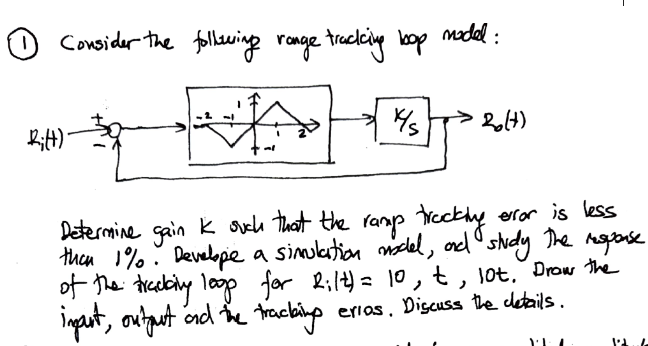 ① Consider the following range tracking loop model :
+
-2 -1 1
1 2
-1
K/S
Ri(t)
-
R₀(t)
Determine gain K such that the ramp tracking error is less
than 1%. Develope a simulation model, and study the response
of the tracking loop for Ri(t) = 10, t, 10t. Draw the
input, output and the tracking erros. Discuss the details.